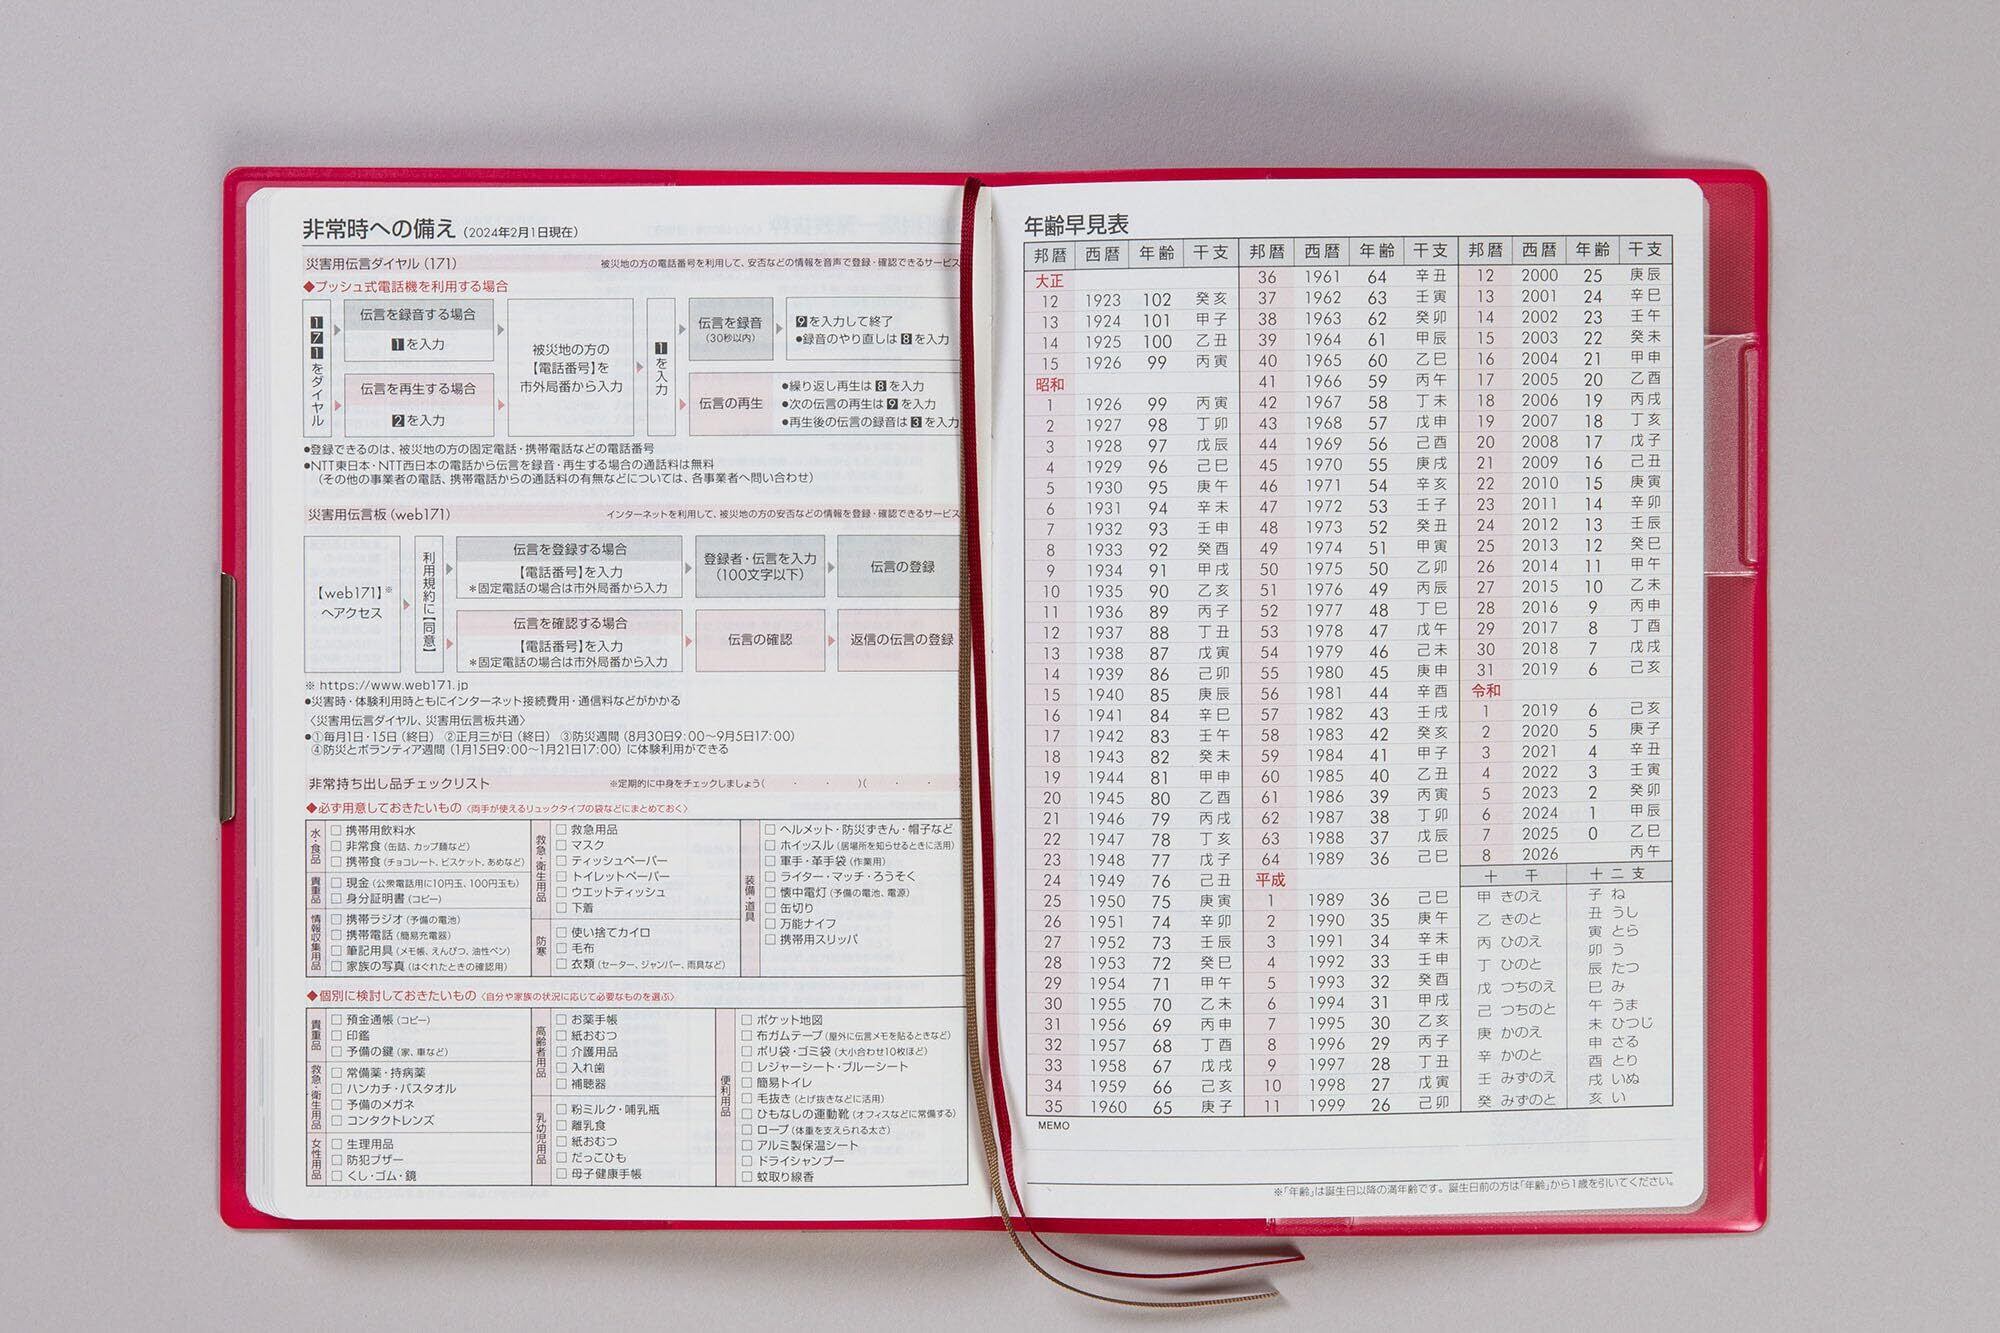 非常時への備え(2024年2月1日現在)
災害用伝言ダイヤル(171) 被災地の方の電話番号を利用して、安否などの情報を音声で登録・確認できるサービス
◆プッシュ式電話機を利用する場合
171をダイヤル
伝言を録音する場合
1を入力
伝言を再生する場合
2を入力
被災地の方の
【電話番号】を
市外局番から入力
1を入力
伝言を録音
(30秒以内)
9を入力して終了
●録音のやり直しは8を入力
伝言の再生
●繰り返し再生は8を入力
●次の伝言の再生は9を入力
●再生後の伝言の録音は3を入力
●登録できるのは、被災地の方の固定電話・携帯電話などの電話番号
●NTT東日本・NTT西日本の電話から伝言を録音・再生する場合の通話料は無料
(その他の事業者の電話、携帯電話からの通話料の有無などについては、各事業者へ問い合わせ)
災害用伝言板(web171) インターネットを利用して、被災地の方の安否などの情報を登録・確認できるサービス
【web171】※
へアクセス
利用規約に【同意】
伝言を登録する場合
【電話番号】を入力
*固定電話の場合は市外局番から入力
登録者・伝言を入力
(100文字以下)
伝言の登録
伝言を確認する場合
【電話番号】を入力
*固定電話の場合は市外局番から入力
伝言の確認
返信の伝言の登録
※ https://www.web171.jp
●災害時・体験利用時ともにインターネット接続費用・通信料などがかかる
〈災害用伝言ダイヤル、災害用伝言板共通〉
●①毎月1日・15日(終日) ②正月三が日(終日) ③防災週間(8月30日9:00〜9月5日17:00)
④防災とボランティア週間(1月15日9:00〜1月21日17:00)に体験利用ができる
非常持ち出し品チェックリスト ※定期的に中身をチェックしましょう( ・ ・ )( ・ ・
◆必ず用意しておきたいもの〈両手が使えるリュックタイプの袋などにまとめておく〉
水・食品
□ 携帯用飲料水
□ 非常食(缶詰、カップ麺など)
□ 携帯食(チョコレート、ビスケット、あめなど)
貴重品
□ 現金(公衆電話用に10円玉、100円玉も)
□ 身分証明書(コピー)
情報収集用品
□ 携帯ラジオ(予備の電池)
□ 携帯電話(簡易充電器)
□ 筆記用具(メモ帳、えんぴつ、油性ペン)
□ 家族の写真(はぐれたときの確認用)
救急・衛生用品
□ 救急用品
□ マスク
□ ティッシュペーパー
□ トイレットペーパー
□ ウエットティッシュ
□ 下着
防寒
□ 使い捨てカイロ
□ 毛布
□ 衣類(セーター、ジャンパー、雨具など)
装備・道具
□ ヘルメット・防災ずきん・帽子など
□ ホイッスル(居場所を知らせるときに活用)
□ 軍手・革手袋(作業用)
□ ライター・マッチ・ろうそく
□ 懐中電灯(予備の電池、電源)
□ 缶切り
□ 万能ナイフ
□ 携帯用スリッパ
◆個別に検討しておきたいもの〈自分や家族の状況に応じて必要なものを選ぶ〉
貴重品
□ 預金通帳(コピー)
□ 印鑑
□ 予備の鍵(家、車など)
救急・衛生用品
□ 常備薬・持病薬
□ ハンカチ・バスタオル
□ 予備のメガネ
□ コンタクトレンズ
女性用品
□ 生理用品
□ 防犯ブザー
□ くし・ゴム・鏡
高齢者用品
□ お薬手帳
□ 紙おむつ
□ 介護用品
□ 入れ歯
□ 補聴器
乳幼児用品
□ 粉ミルク・哺乳瓶
□ 離乳食
□ 紙おむつ
□ だっこひも
□ 母子健康手帳
便利用品
□ ポケット地図
□ 布ガムテープ(屋外に伝言メモを貼るときなど)
□ ポリ袋・ゴミ袋(大小合わせ10枚ほど)
□ レジャーシート・ブルーシート
□ 簡易トイレ
□ 毛抜き(とげ抜きなどに活用)
□ ひもなしの運動靴(オフィスなどに常備する)
□ ロープ(体重を支えられる太さ)
□ アルミ製保温シート
□ ドライシャンプー
□ 蚊取り線香
年齢早見表
邦暦 西暦 年齢 干支
大正
12 1923 102 癸亥
13 1924 101 甲子
14 1925 100 乙丑
15 1926 99 丙寅
昭和
1 1926 99 丙寅
2 1927 98 丁卯
3 1928 97 戊辰
4 1929 96 己巳
5 1930 95 庚午
6 1931 94 辛未
7 1932 93 壬申
8 1933 92 癸酉
9 1934 91 甲戌
10 1935 90 乙亥
11 1936 89 丙子
12 1937 88 丁丑
13 1938 87 戊寅
14 1939 86 己卯
15 1940 85 庚辰
16 1941 84 辛巳
17 1942 83 壬午
18 1943 82 癸未
19 1944 81 甲申
20 1945 80 乙酉
21 1946 79 丙戌
22 1947 78 丁亥
23 1948 77 戊子
24 1949 76 己丑
25 1950 75 庚寅
26 1951 74 辛卯
27 1952 73 壬辰
28 1953 72 癸巳
29 1954 71 甲午
30 1955 70 乙未
31 1956 69 丙申
32 1957 68 丁酉
33 1958 67 戊戌
34 1959 66 己亥
35 1960 65 庚子
邦暦 西暦 年齢 干支
36 1961 64 辛丑
37 1962 63 壬寅
38 1963 62 癸卯
39 1964 61 甲辰
40 1965 60 乙巳
41 1966 59 丙午
42 1967 58 丁未
43 1968 57 戊申
44 1969 56 己酉
45 1970 55 庚戌
46 1971 54 辛亥
47 1972 53 壬子
48 1973 52 癸丑
49 1974 51 甲寅
50 1975 50 乙卯
51 1976 49 丙辰
52 1977 48 丁巳
53 1978 47 戊午
54 1979 46 己未
55 1980 45 庚申
56 1981 44 辛酉
57 1982 43 壬戌
58 1983 42 癸亥
59 1984 41 甲子
60 1985 40 乙丑
61 1986 39 丙寅
62 1987 38 丁卯
63 1988 37 戊辰
64 1989 36 己巳
平成
1 1989 36 己巳
2 1990 35 庚午
3 1991 34 辛未
4 1992 33 壬申
5 1993 32 癸酉
6 1994 31 甲戌
7 1995 30 乙亥
8 1996 29 丙子
9 1997 28 丁丑
10 1998 27 戊寅
11 1999 26 己卯
邦暦 西暦 年齢 干支
12 2000 25 庚辰
13 2001 24 辛巳
14 2002 23 壬午
15 2003 22 癸未
16 2004 21 甲申
17 2005 20 乙酉
18 2006 19 丙戌
19 2007 18 丁亥
20 2008 17 戊子
21 2009 16 己丑
22 2010 15 庚寅
23 2011 14 辛卯
24 2012 13 壬辰
25 2013 12 癸巳
26 2014 11 甲午
27 2015 10 乙未
28 2016 9 丙申
29 2017 8 丁酉
30 2018 7 戊戌
31 2019 6 己亥
令和
1 2019 6 己亥
2 2020 5 庚子
3 2021 4 辛丑
4 2022 3 壬寅
5 2023 2 癸卯
6 2024 1 甲辰
7 2025 0 乙巳
8 2026 丙午
十干
甲 きのえ
乙 きのと
丙 ひのえ
丁 ひのと
戊 つちのえ
己 つちのと
庚 かのえ
辛 かのと
壬 みずのえ
癸 みずのと
十二支
子 ね
丑 うし
寅 とら
卯 う
辰 たつ
巳 み
午 うま
未 ひつじ
申 さる
酉 とり
戌 いぬ
亥 い
MEMO
※「年齢」は誕生日以降の満年齢です。誕生日前の方は「年齢」から1歳を引いてください。